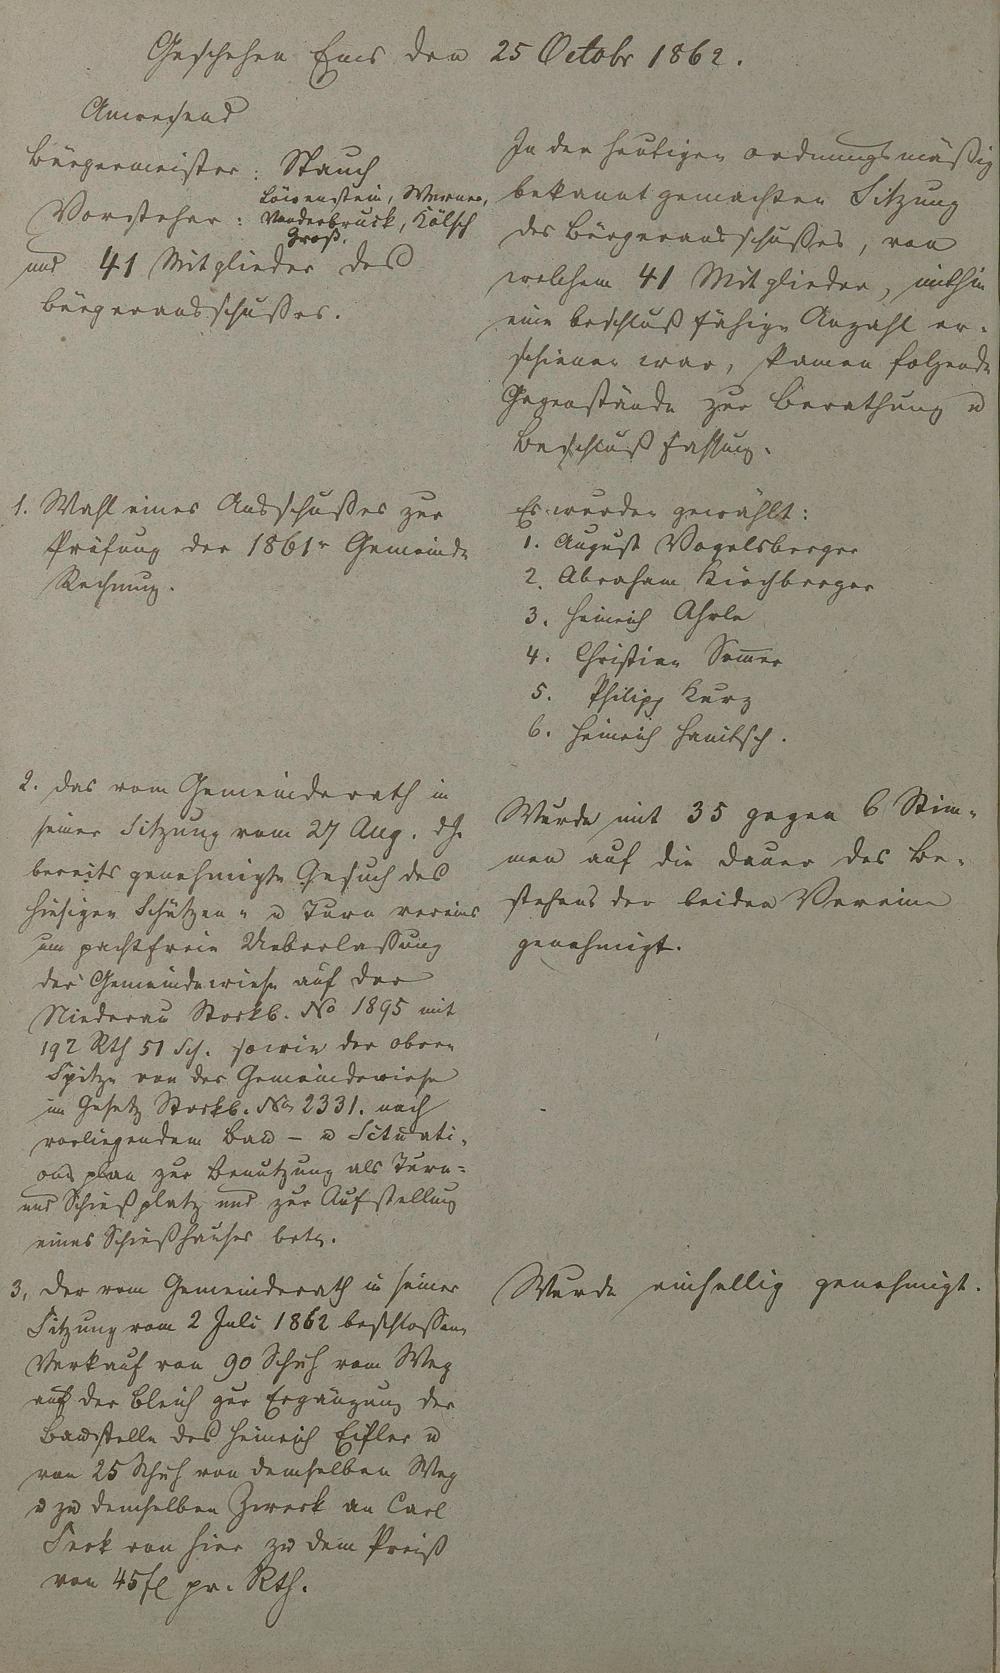 Geschehen Ems den 25 Octobr 1862.
Anwesend
Bürgermeister: Stauch
Vorsteher: Löwenstein, Werner,
Vanderbruck, Kölsch
Groß.
und 41 Mitglieder des
Bürgerausschußes.
In der heutigen ordnungsmäßig
bekannt gemachten Sitzung
des Bürgerausschußes, von
welchem 41 Mitglieder, mithin
eine beschluß fähige Anzahl er-
schienen war, kamen folgende
Gegenstände zur Berathung u
Beschluß fassung.
1. Wahl eines Ausschußes zur
Prüfung der 1861r Gemeinde
Rechnung.
Es wurden gewählt:
1. August Vogelsberger
2. Abraham Kirchberger
3. Heinrich Ahrle
4. Christian Sommer
5. Philipp Kurz
6. Heinrich Hanitsch.
2. Das vom Gemeinderath in
seiner Sitzung vom 27 Aug. d J.
bereits genehmigte Gesuch des
hiesigen Schützen- u Turn vereins
um pachtfreie Ueberlaßung
der Gemeindewiese auf der
Niederau Stockb. No 1895 mit
192 Rth 51 Sch. sowie der obern
Spitze von der Gemeindewiese
im Gesetz Stockb. No 2331. nach
vorliegendem Bau- u Situati-
ons plan zur Benutzung als Turn-
und Schießplatz und zur Aufstellung
eines Schießhauses betr.
Wurde mit 35 gegen 6 Stim-
men auf die Dauer des Be-
stehens der beiden Vereine
genehmigt.
3, Der vom Gemeinderath in seiner
Sitzung vom 2 Juli 1862 beschlossene
Verkauf von 90 Schuh vom Weg
auf der Bleich zur Ergänzung der
Baustelle des Heinrich Eifler u
von 25 Schuh von demselben Weg
u zu demselben Zweck an Carl
Seck von hier zu dem Preiß
von 45 fl pr. Rth.
Wurde einhellig genehmigt.